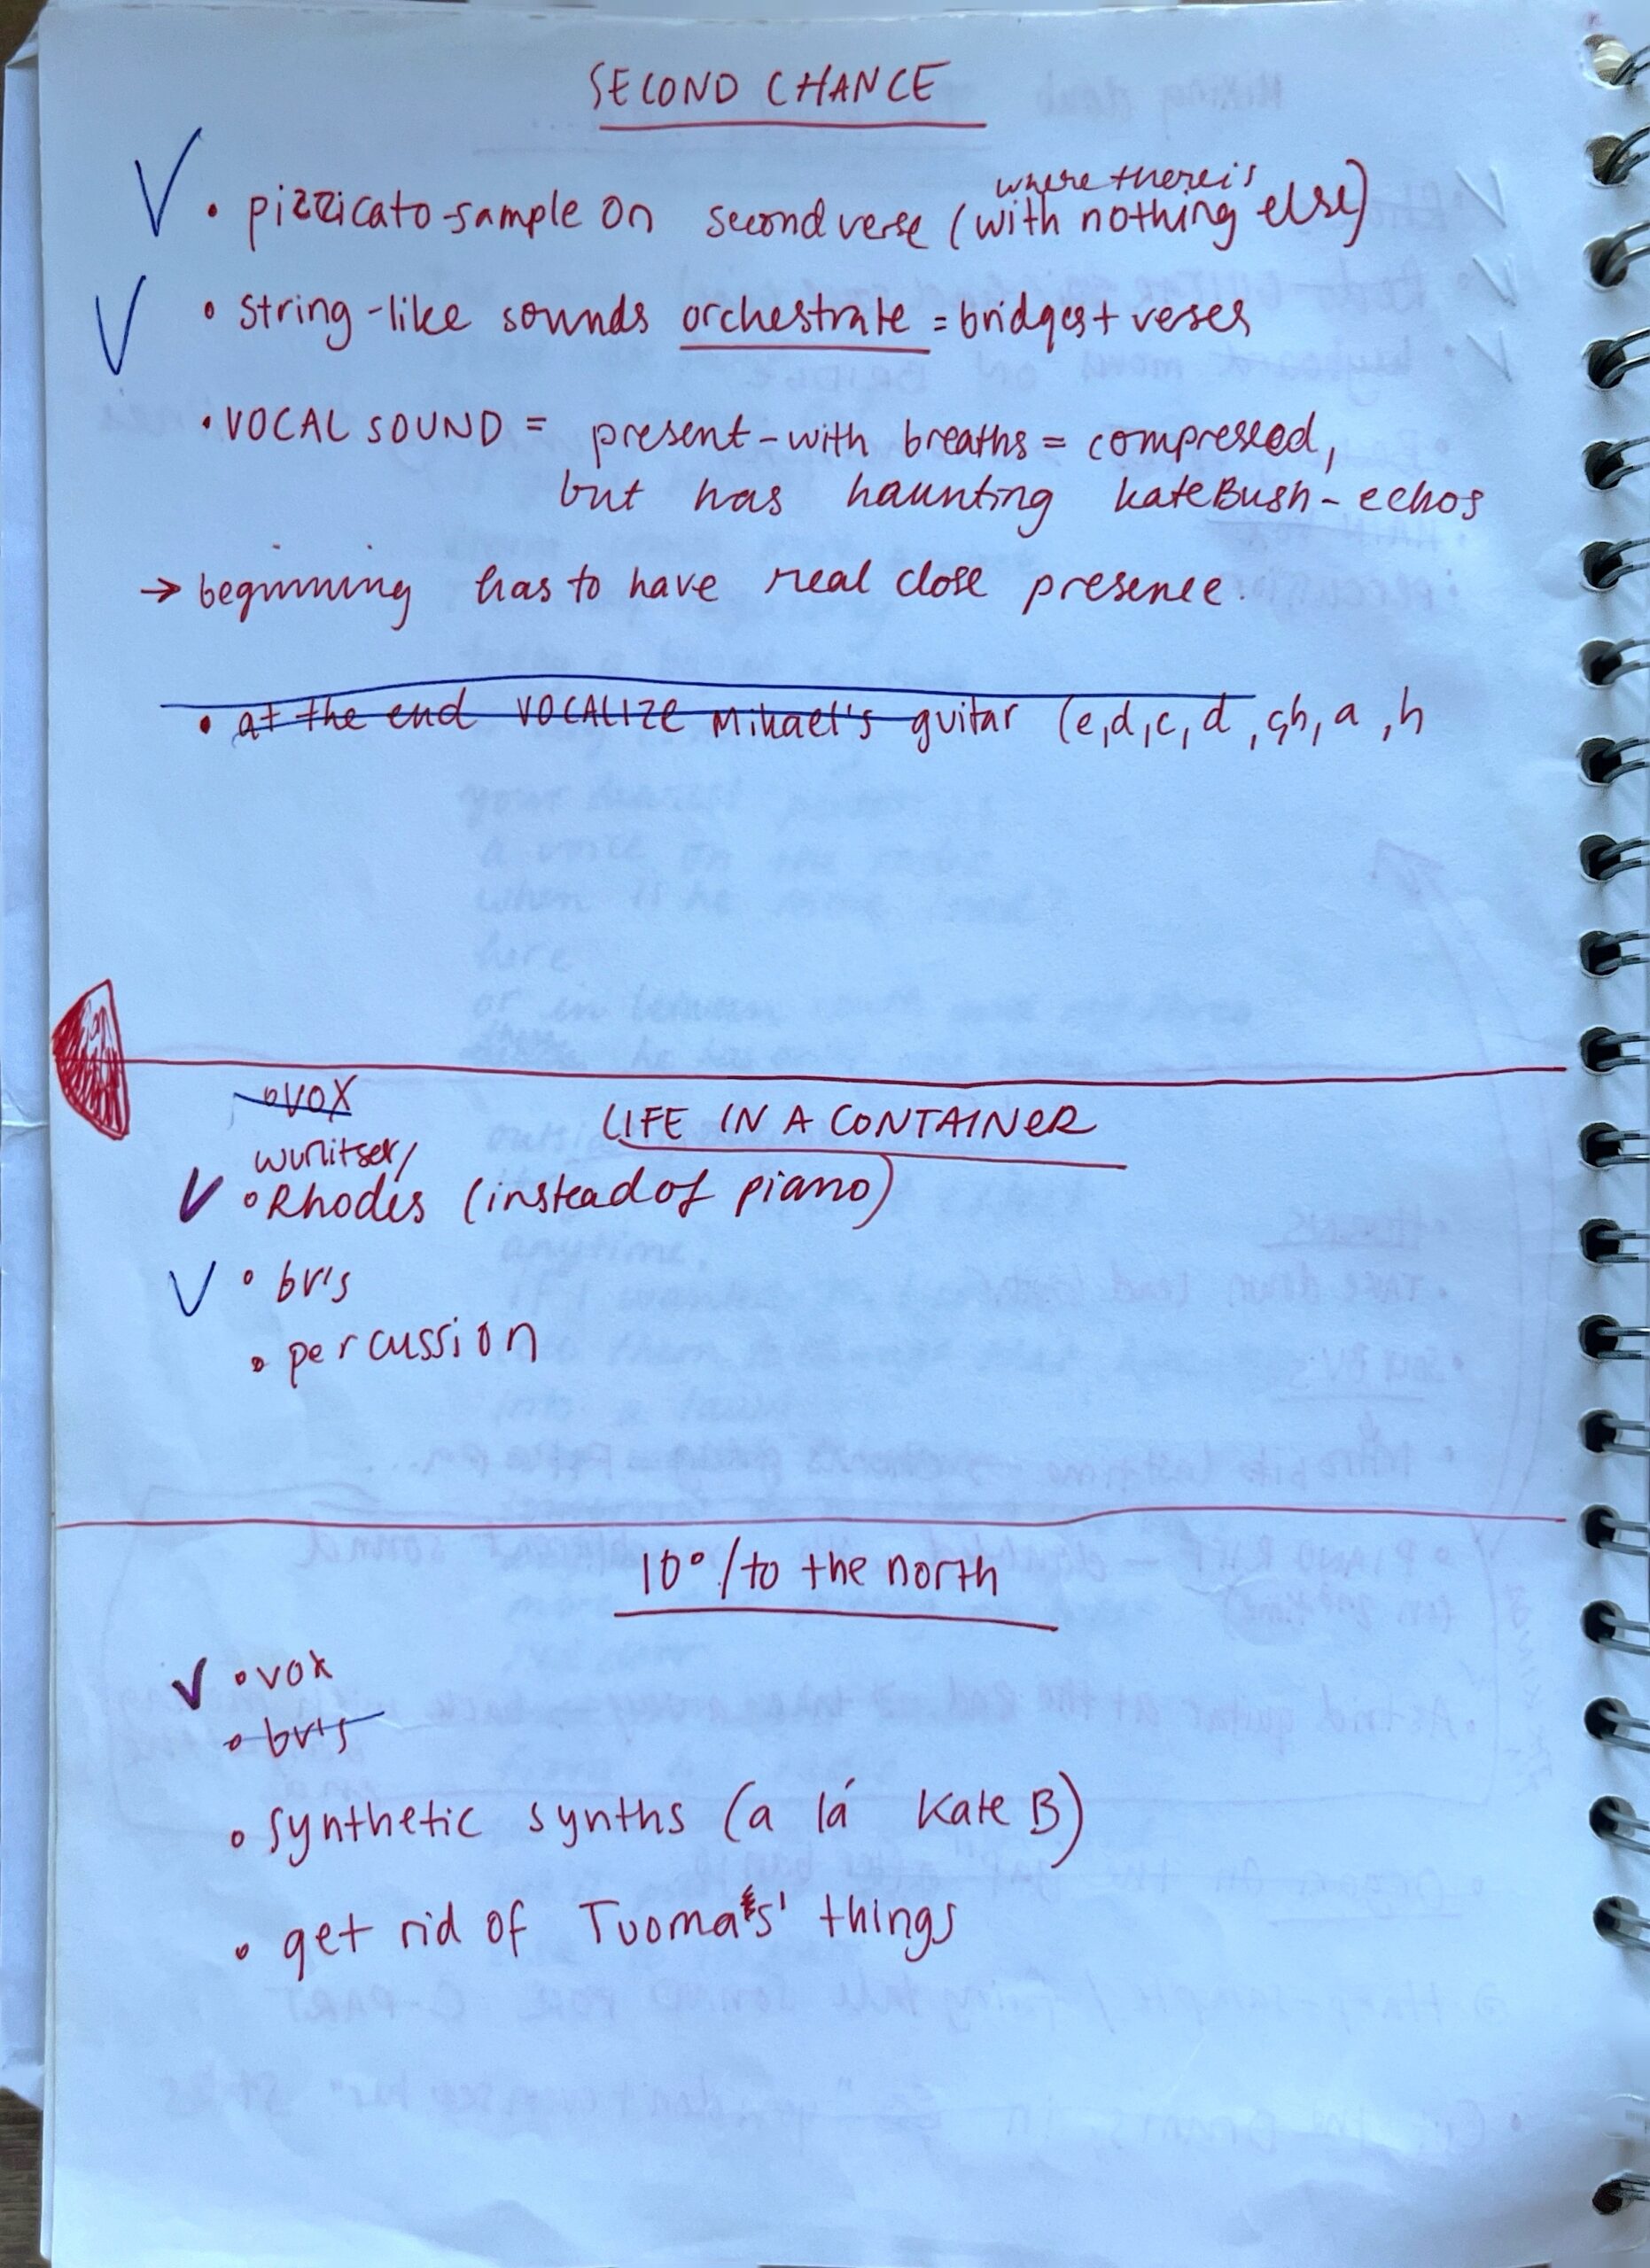 SECOND CHANCE
where there is
• pizzicato-sample on second verse (with nothing else)
• string-like sounds orchestrate = bridges + veses
• VOCAL SOUND = present - with breaths = compressed,
but has haunting kateBush - echos
→ beginning has to have real close presence.
• at the end VOCALIZE Mikael's guitar (e, d, c, d, a, h
• vox
LIFE IN A CONTAINER
wurlitser/
• Rhodes (instead of piano)
• bv's
• percussion
10° / to the north
• vox
• bv's
• synthetic synths (a lá Kate B)
• get rid of Tuomas' things